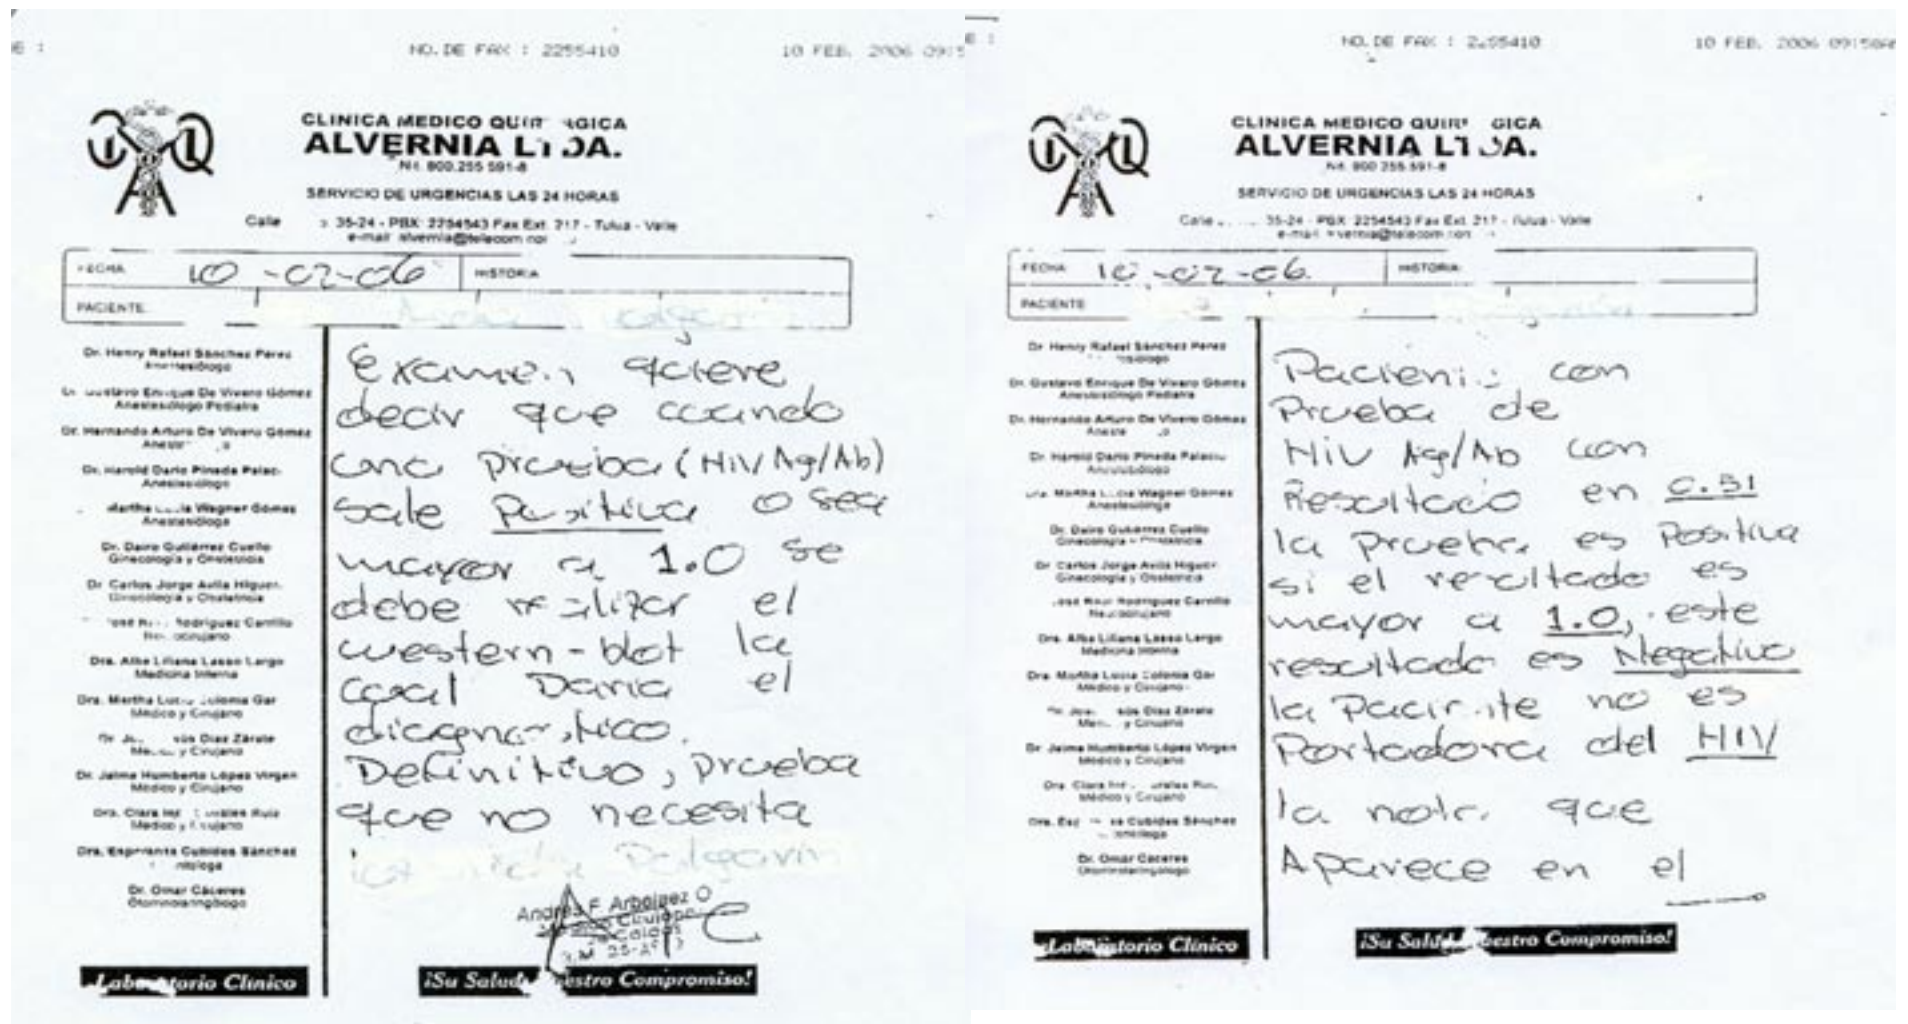 NO. DE FAX : 2255410
10 FEB. 2006
CLINICA MEDICO
ALVERNIA LTDA.
Nit. 800.255 591-8
SERVICIO DE URGENCIAS LAS 24 HORAS
Calle 35-24 - PBX: 2254543 Fax Ext. 217 - Tulua - Valle
FECHA: 10-02-06 HISTORIA:
PACIENTE:
Dr. Henry Rafael Sánchez Pérez
Anestesiólogo
Dr. Gustavo Enrique De Vivero Gómez
Anestesiólogo Pediatra
Dr. Hernando Arturo De Vivero Gómez
Dr. Harold Dario Pineda
Anestesiólogo
Martha Wagner Gómez
Anestesióloga
Dr. Dairo Gutiérrez Cuello
Ginecología y Obstetricia
Dr. Carlos Jorge Avila
Ginecología y Obstetricia
Rodríguez Carrillo
Dra. Alba Liliana Lasso Largo
Medicina Interna
Dra. Martha Lucia Colonia
Médico y Cirujano
Díaz Zárate
y Cirujano
Dr. Jaime Humberto López Virgen
Médico y Cirujano
Dra. Clara
Médico y Cirujano
Dra. Esperanza Cubides Sánchez
Dr. Omar Cáceres
Otorrinolaringólogo
Examen quiere
decir que cuando
una prueba (HIV Ag/Ab)
sale Positiva o sea
mayor a 1.0 se
debe realizar el
western-blot la
cual Daria el
diagnostico.
Definitivo, prueba
que no necesita
Laboratorio Clínico
¡Su Salud Nuestro Compromiso!
NO. DE FAX : 2255410
10 FEB. 2006 09:58AM
CLINICA MEDICO
ALVERNIA LTDA.
Nit. 800 255.591-8
SERVICIO DE URGENCIAS LAS 24 HORAS
Calle 35-24 - PBX: 2254543 Fax Ext. 217 - Tulua - Valle
FECHA: 10-02-06. HISTORIA:
PACIENTE:
Dr. Henry Rafael Sánchez Pérez
Dr. Gustavo Enrique De Vivero Gómez
Anestesiólogo Pediatra
Dr. Hernando Arturo De Vivero Gómez
Dr. Harold Dario Pineda
Anestesiólogo
Dra. Martha Lucia Wagner Gómez
Anestesióloga
Dr. Dairo Gutiérrez Cuello
Dr. Carlos Jorge Avila
Ginecología y Obstetricia
Rodríguez Carrillo
Neurocirujano
Dra. Alba Liliana Lasso Largo
Medicina Interna
Dra. Martha Lucia Colonia
Médico y Cirujano
Díaz Zárate
y Cirujano
Dr. Jaime Humberto López Virgen
Médico y Cirujano
Dra. Clara
Médico y Cirujano
Cubides Sánchez
Dr. Omar Cáceres
Otorrinolaringólogo
Paciente con
Prueba de
HIV Ag/Ab con
Resultado en 0.51
la prueba es Positiva
si el resultado es
mayor a 1.0, este
resultado es Negativo
la Paciente no es
Portadora del HIV
la nota que
Aparece en el
Laboratorio Clínico
¡Su Salud Nuestro Compromiso!